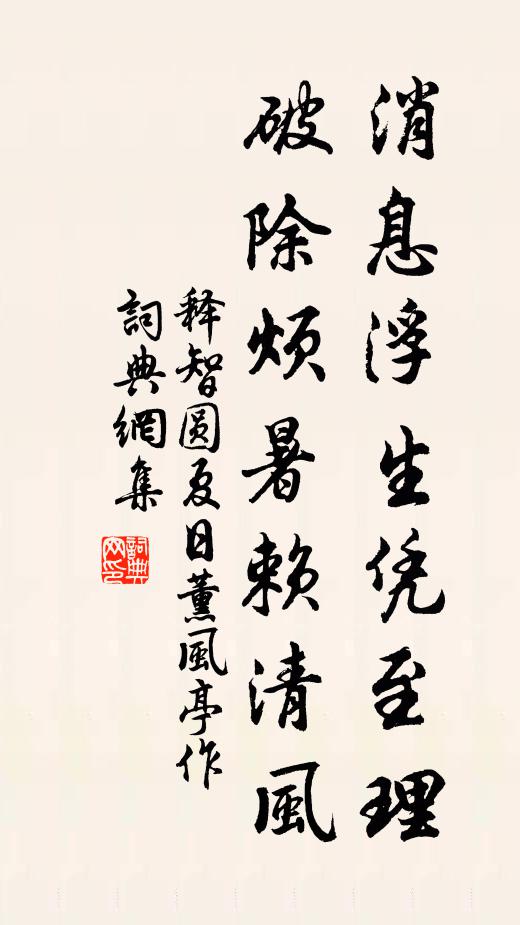 消息浮生凭至理
破除烦暑赖清風
释智圆夏日薰風亭作
詞典網集
詞典
网印